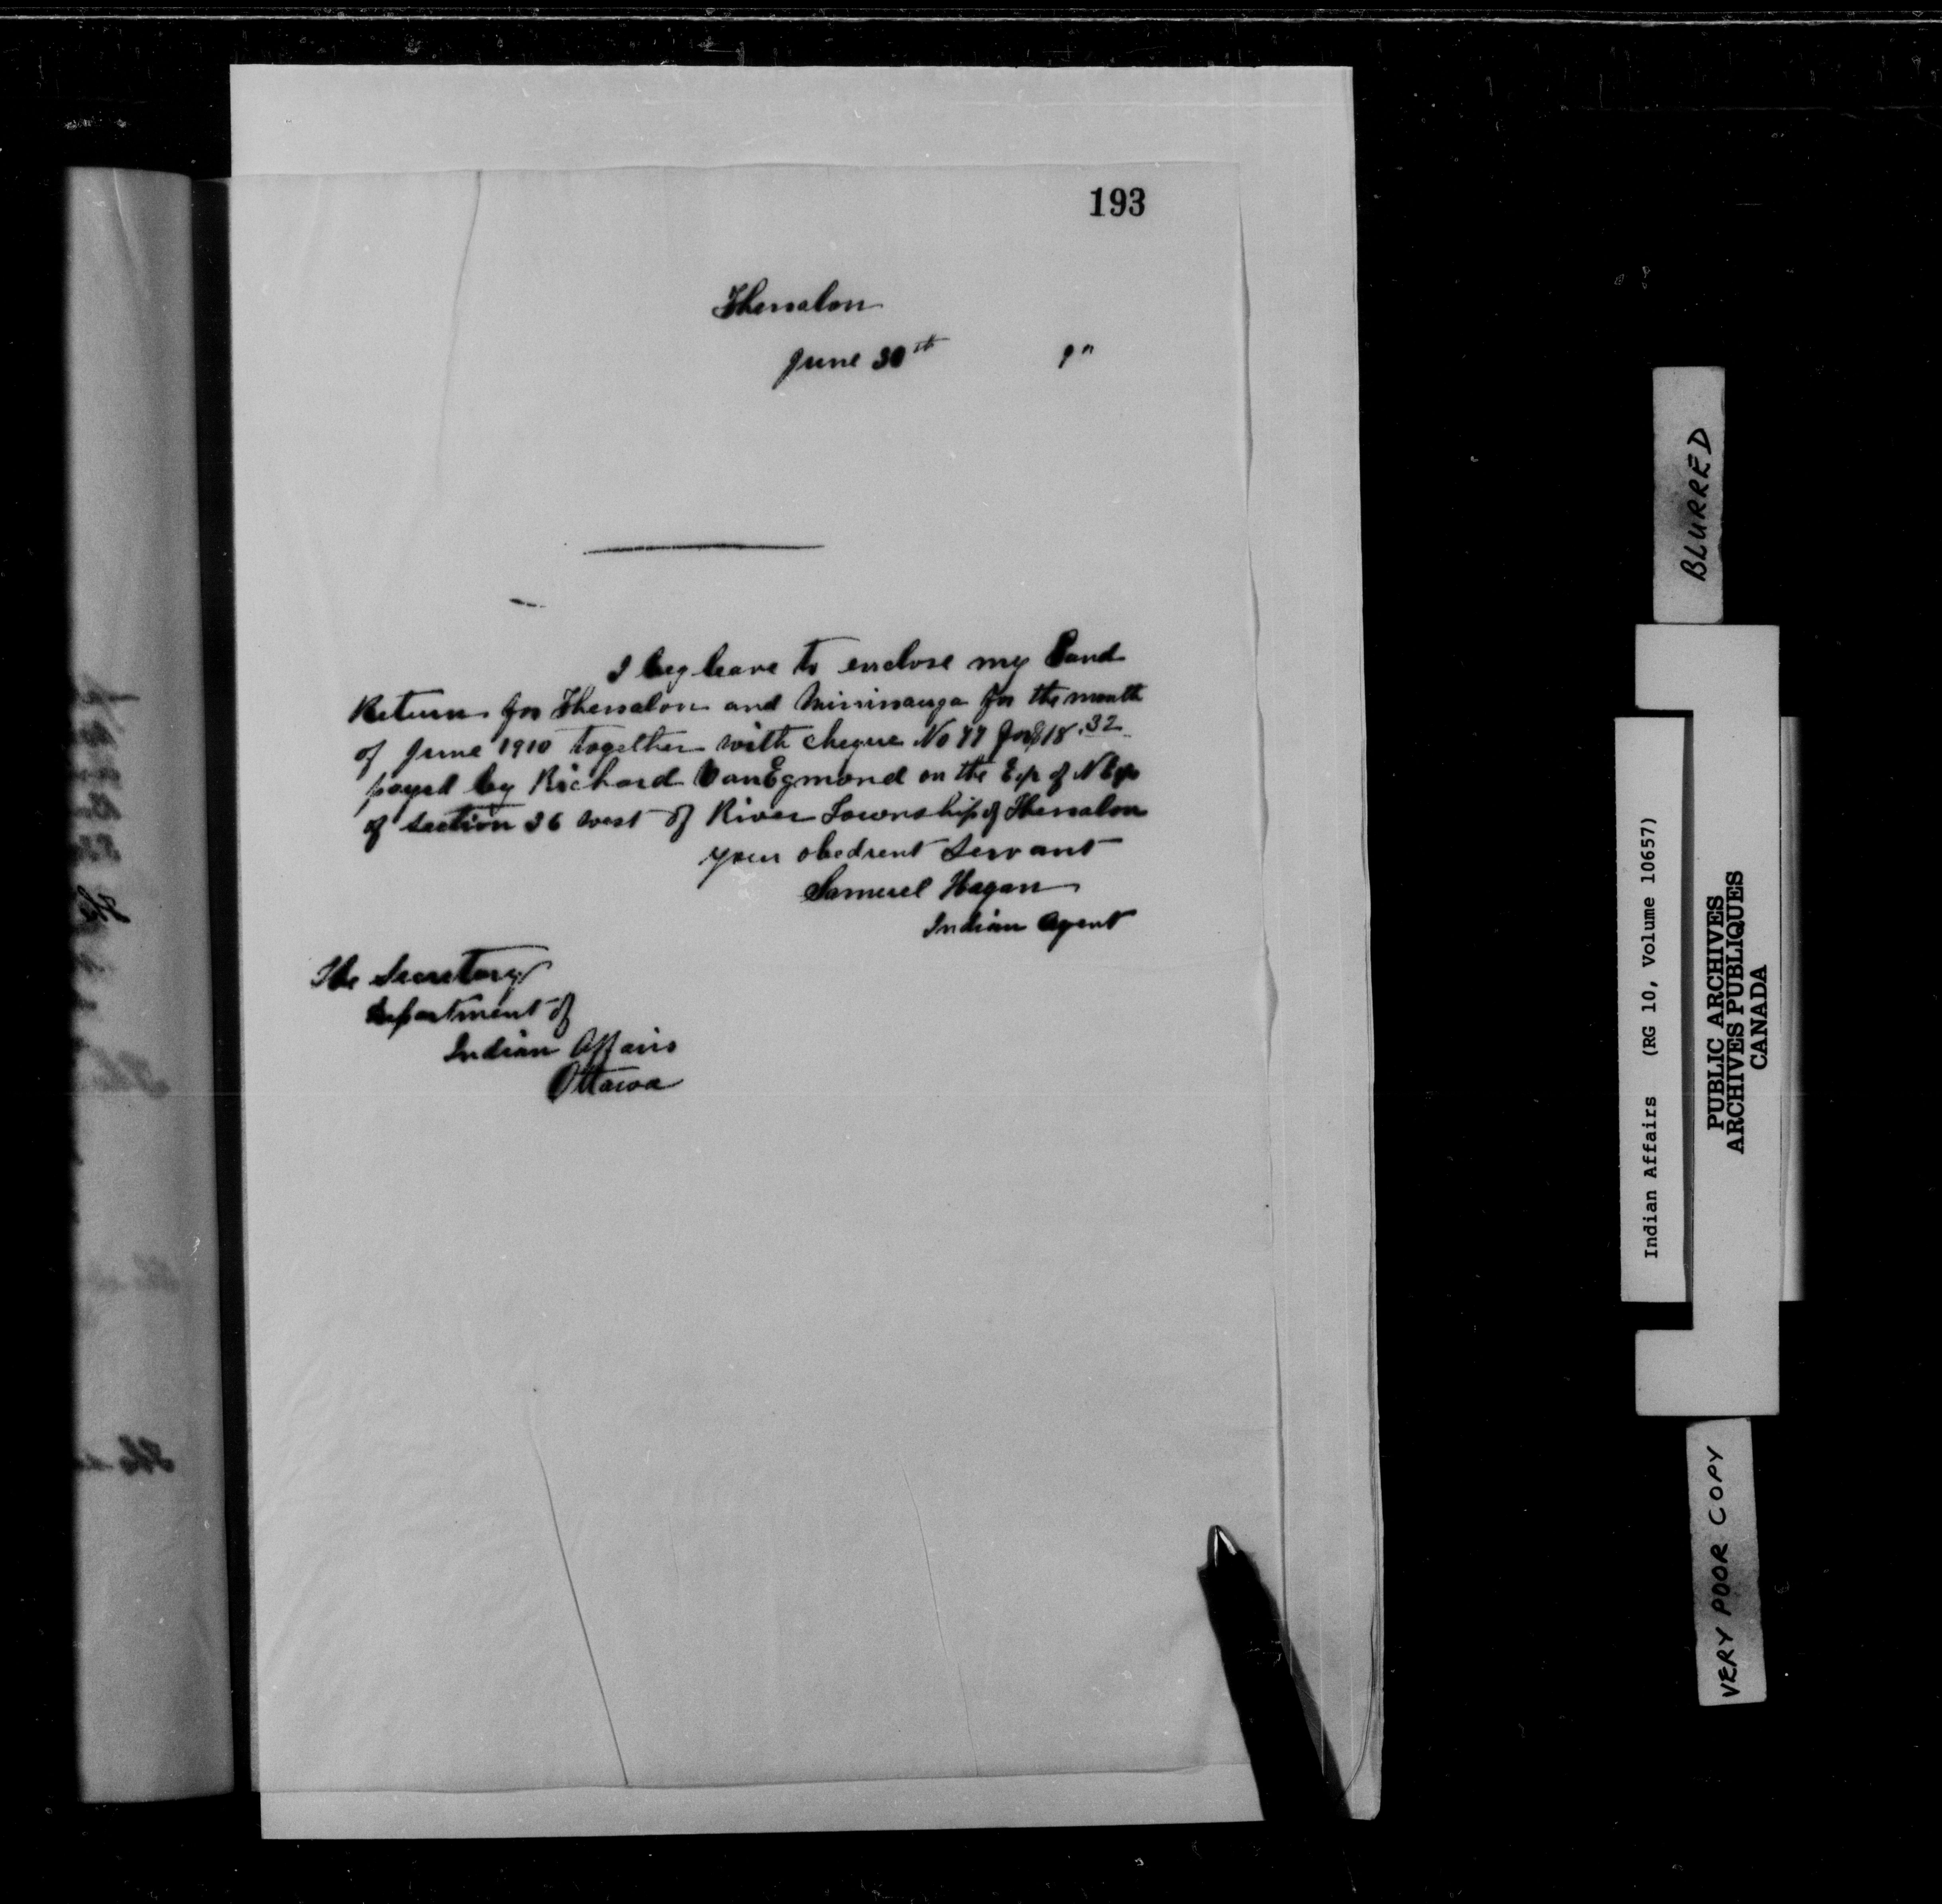 193
Thessalon
June 30th 10
I beg leave to enclose my Land
Returns for Thessalon and Mississauga for the month
of June 1910 together with cheque No 77 for $18.32
payed by Richard VanEgmond on the E½ of N E¼
of Section 36 west of River Township of Thessalon
your obedient Servant
Samuel Hagan
Indian Agent
The Secretary
Department of
Indian Affairs
Ottawa
BLURRED
Indian Affairs (RG 10, Volume 10657)
PUBLIC ARCHIVES
ARCHIVES PUBLIQUES
CANADA
VERY POOR COPY